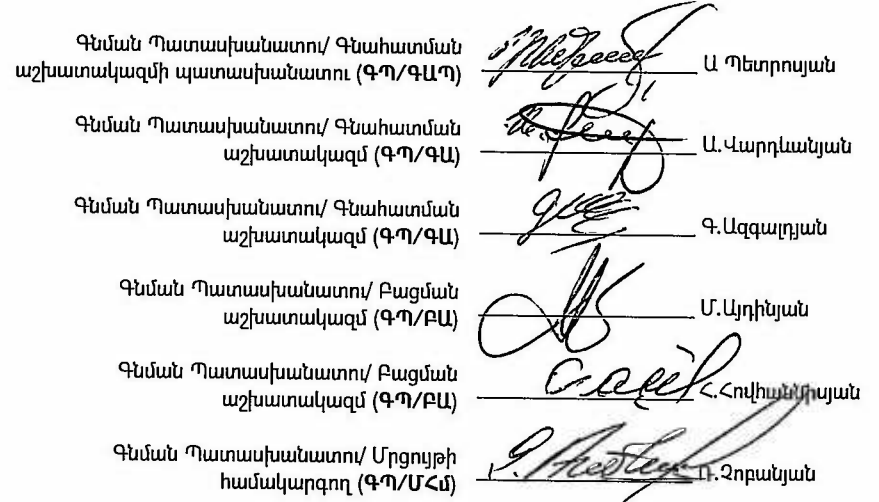 Գնման Պատասխանատու/ Գնահատման
աշխատակազմի պատասխանատու (ԳՊ/ԳԱՊ) Ա Պետրոսյան
Գնման Պատասխանատու/ Գնահատման
աշխատակազմ (ԳՊ/ԳԱ) Ա.Վարդևանյան
Գնման Պատասխանատու/ Գնահատման
աշխատակազմ (ԳՊ/ԳԱ) Գ.Ազգալդյան
Գնման Պատասխանատու/ Բացման
աշխատակազմ (ԳՊ/ԲԱ) Մ.Այդինյան
Գնման Պատասխանատու/ Բացման
աշխատակազմ (ԳՊ/ԲԱ) Հ.Հովհաննիսյան
Գնման Պատասխանատու/ Մրցույթի
համակարգող (ԳՊ/ՄՀմ) Ռ.Չոբանյան